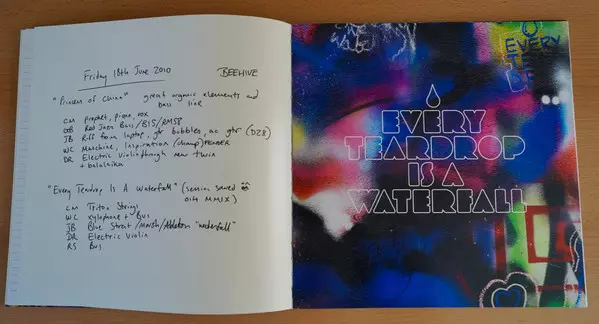 Friday 18th June 2010 BEEHIVE
"Princess of China" great organic elements and
bass line
CM prophet, piano, vox
GB Red Jazz Bass/B15/RMSP
JB Riff from laptop, gtr bobbles, ac gtr (D28)
WC Maschine, Inspiration/champ/FENDER
DR Electric Violin through new twin
+ balalaika
"Every Teardrop Is A Waterfall" (session saved
MMIX)
CM Triton Strings
WC xylophone + Bus
JB Blue Strat/ /Ableton "waterfall"
DR Electric Violin
RS Bus
EVERY
TEARDROP
IS A
WATERFALL
EVERY